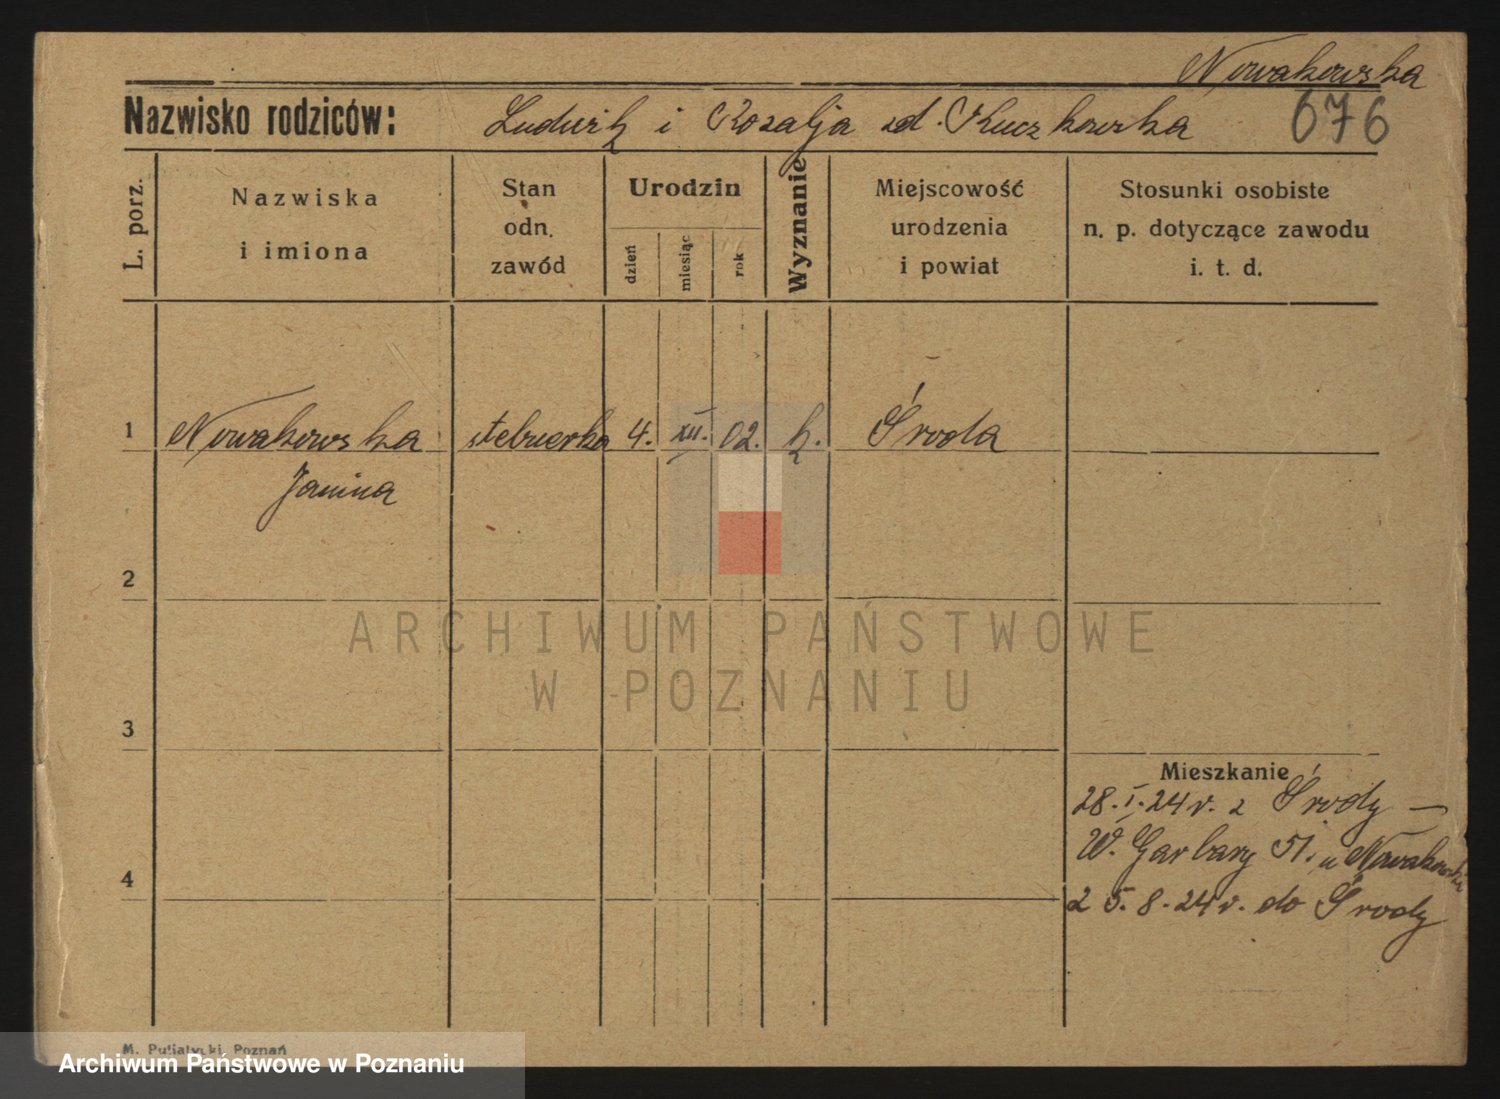 Nowakowska
Nazwisko rodziców: Ludwik i Rozalja zd. Kuczkowska 676
L. porz.
Nazwiska i imiona
Stan odn. zawód
Urodzin
dzień miesiąc rok
Wyznanie
Miejscowość urodzenia i powiat
Stosunki osobiste n. p. dotyczące zawodu i. t. d.
1 Nowakowska 4. XII. 02. k. Środa
Janina
2
ARCHIWUM PAŃSTWOWE
W POZNANIU
3
Mieszkanie
28. I. 24 r. z Środy —
W. Garbary 51. u Nowakowski
4
25. 8. 24 r. do Środy
M. Putiatycki, Poznań
Archiwum Państwowe w Poznaniu